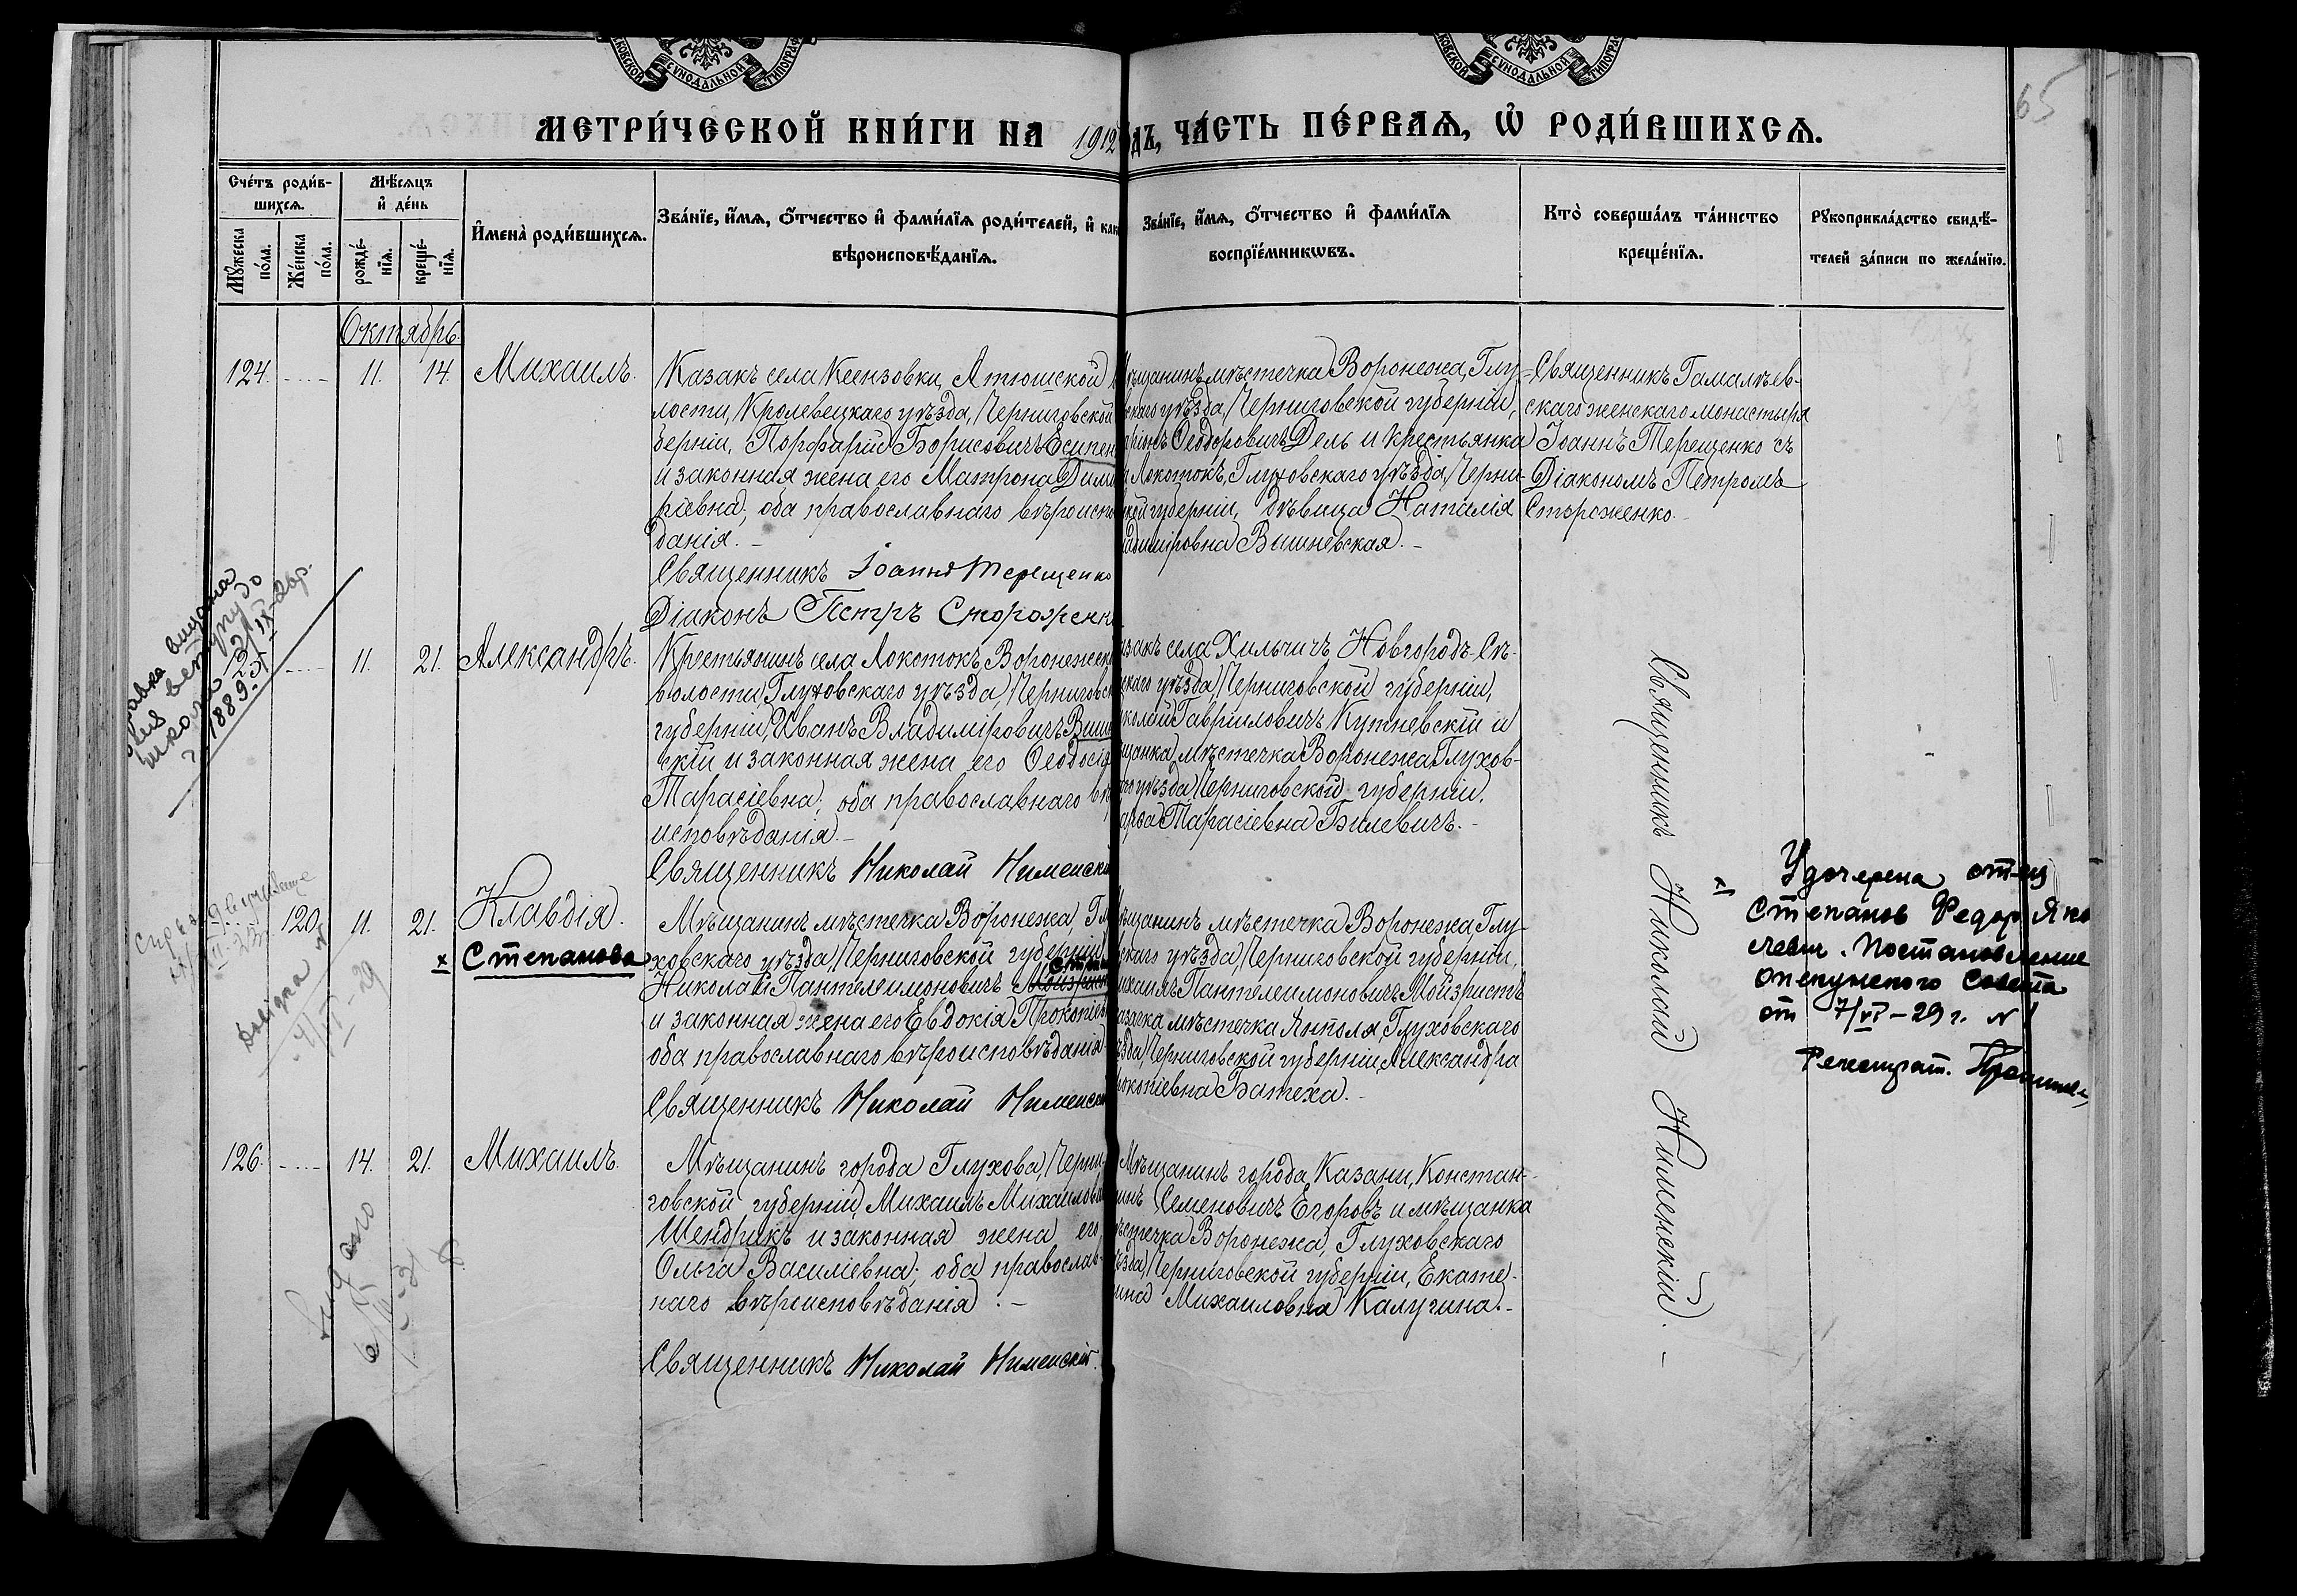 МЕТРИ́ЧЕСКОЙ КНИ́ГИ НА 1912
ДЪ, ЧА́СТЬ ПЕ́РВАѦ, Ѽ РОДИ́ВШИХСѦ.
65
Сче́тъ роди́в-
шихсѧ.
Мꙋ́жеска
по́ла.
Же́нска
по́ла.
Мѣ́сѧцъ
и҆ де́нь
рожде́-
нїѧ.
креще́-
нїѧ.
И҆мена̀ роди́вшихсѧ.
Зва́нїе, и҆́мѧ, ѻ҆́тчество и҆ фами́лїѧ роди́телей, и҆ как
вѣроисповѣ́данїѧ.
Зва́нїе, и҆́мѧ, ѻ҆́тчество и҆ фами́лїѧ
воспрїе́мникѡвъ.
Кто̀ соверша́лъ та́инство
креще́нїѧ.
Рꙋкоприкла́дство свидѣ́-
телей за́писи по жела́нїю.
Октябрь.
124. 11. 14. Михаилъ.
Казакъ села Ксензовки, Атюшской
лости, Кролевецкаго уѣзда, Черниговской
берніи, Порфирій Борисовичъ Есипен
и законная жена его Матрона Дими
ріевна; оба православнаго вѣроиспо
данія. –
Священникъ Іоаннъ Терещенко
Діаконъ Петръ Стороженк
ѣщанинъ мѣстечка Воронежа, Глу-
скаго уѣзда, Черниговской губерніи,
Ѳеодоровичъ Дель и крестьянка
Локотокъ, Глуховскаго уѣзда, Черни-
кой губерніи, дѣвица Наталія
адиміровна Вишневская. –
Священникъ Гамалѣев-
скаго женскаго монастыря
Іоаннъ Терещенко съ
Діакономъ Петромъ
Стороженко.
125. 11. 21. Александръ.
Крестьянинъ села Локотокъ, Воронежск
волости, Глуховскаго уѣзда, Черниговск
губерніи, Иванъ Владиміровичъ Виш
скій и законная жена его Ѳеодосія
Тарасіевна; оба православнаго вѣ
исповѣданія. –
Священникъ Николай Нименскій
азакъ села Хильчичъ Новгородъ-Сѣ-
скаго уѣзда, Черниговской губерніи,
иколай Гавріиловичъ Кутневскій и
щанка мѣстечка Воронежа Глухов-
го уѣзда Черниговской губерніи.
Тарасіевна Билевичъ. –
Священникъ Николай Нименскій. –
120. 11. 21. Клавдія.
х Степанова
Мѣщанинъ мѣстечка Воронежа, Глу
ховскаго уѣзда, Черниговской губерніи
Степан
Николай Пантелеимоновичъ Мойзрист
и законная жена его Евдокія Прокопіев
оба православнаго вѣроисповѣданія
Священникъ Николай Нименск
ѣщанинъ мѣстечка Воронежа, Глу-
скаго уѣзда, Черниговской губерніи,
ихаилъ Пантелеимоновичъ Мойзристъ
азачка мѣстечка Янполя, Глуховскаго
ѣзда, Черниговской губерніи, Александра
рокопіевна Батеха. –
х Удочерена от-ца
Степанов Федор Яко
левич. Постановление
опекунского Совета
от 7/VI – 29 г. №1
Регистрат.
126. 14. 21. Михаилъ.
Мѣщанинъ города Глухова, Черни-
говской губерніи, Михаилъ Михаилови
Шендрикъ и законная жена его,
Ольга Василіевна; оба православ-
наго вѣроисповѣданія. –
Священникъ Николай Нименскій.
Мѣщанинъ города Казани, Констан-
инъ Семеновичъ Егоровъ и мѣщанка
ѣстечка Воронежа, Глуховскаго
ѣзда, Черниговской губерніи, Екате-
ина Михаиловна Калугина. –